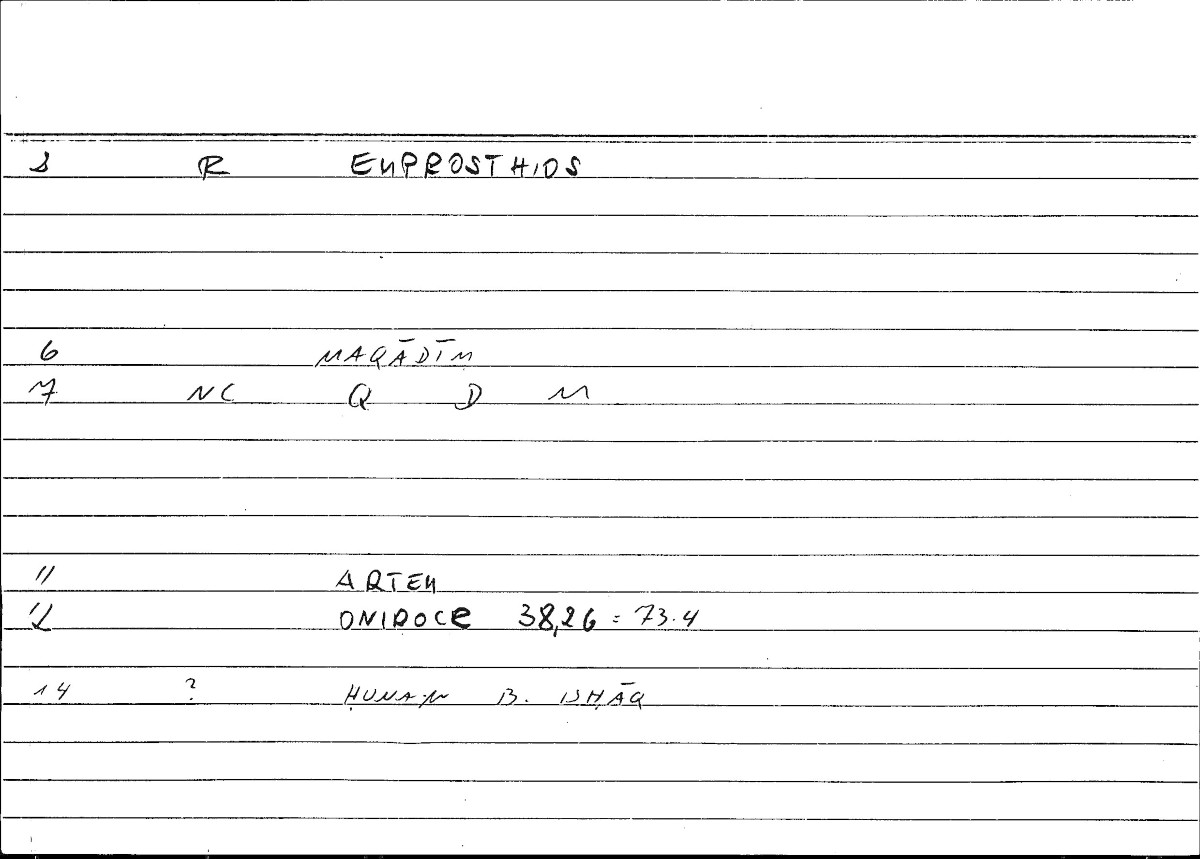 1 R EMPROSTHIOS
6 MAQĀDĪM
7 NC Q D M
11 ARTEM
12 ONIROCR 38,26 = 73.4
14 ? ḤUNAIN B. ISḤĀQ